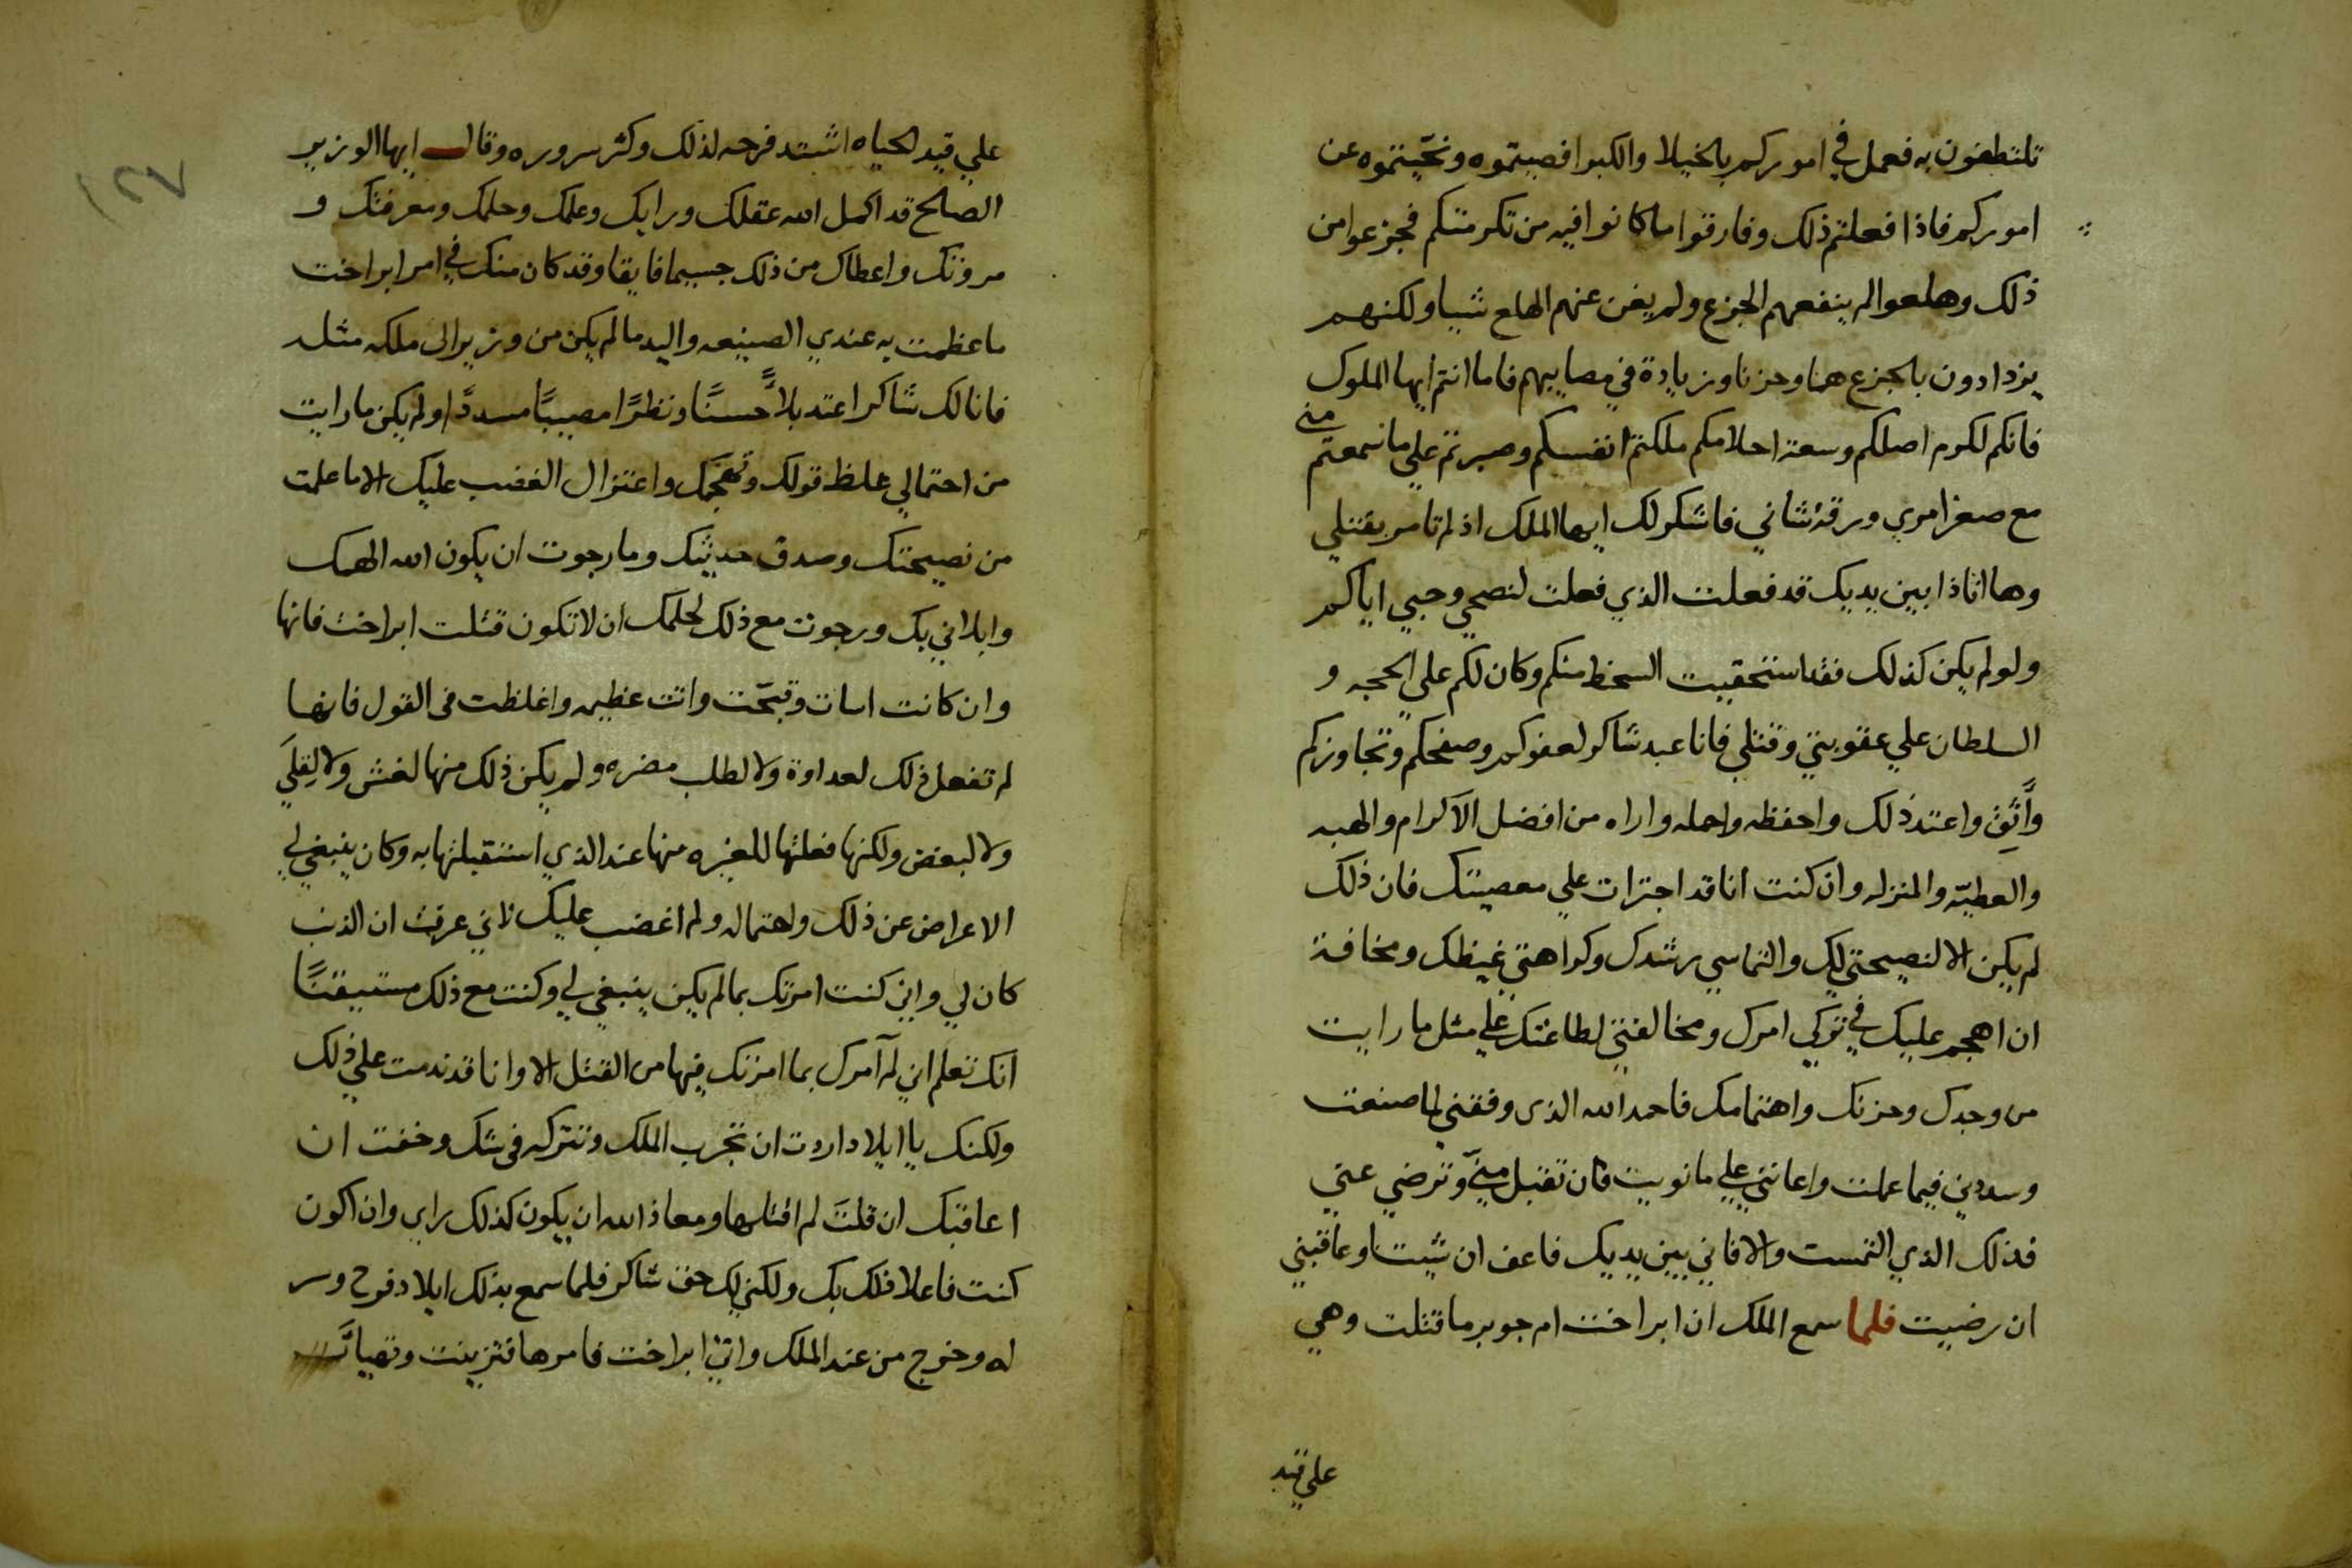 تلتطفون به فعمل في اموركم بالخيلا والكبر اقصيتموه ونحّيتموه عن
اموركم فاذا فعلتم ذلك وفارقوا ما كانوا فيه من تكرمتكم فجزعوا من
ذلك وهلعوا لم ينفعهم الجزع ولم يغن عنهم الهلع شيا ولكنهم
يزدادون بالجزع هما وحزنا وزيادة في مصايبهم فاما انتم ايها الملوك
فانكم لكرم اصلكم وسعة احلامكم ملكتم انفسكم وصبرتم علي ما سمعتم مني
مع صغر امري ورقة شاني فاشكر لك ايها الملك اذ لم تامر بقتلي
وها انا ذا بين يديك قد فعلت الذي فعلت لنصحي وحبي اياكم
ولو لم يكن كذلك فقد استحقيت السخط منكم وكان لكم علي الحجه و
السلطان علي عقوبتي وقتلي فانا عبد شاكر لعفوكم وصفحكم وتجاوزكم
واثق واعتد ذلك واحفظه واحمله واراه من افضل الاكرام والهبه
والعطيّه والمنزله وان كنت انا قد اجترات علي معصيتك فان ذلك
لم يكن الا لنصيحتي لك والتماسي رشدك وكراهتي غيظك ومخافة
ان اهجم عليك في تركي امرك ومخالفتي لطاعتك علي مثل ما رايت
من وجدك وحزنك واهتمامك فاحمد الله الذى وفقني لما صنعت
وسددني فيما عملت واعانني علي ما نويت فان تقبل منّي وترضي عني
فذلك الذي التمست والا فاني بين يديك فاعف ان شيت او عاقبني
ان رضيت فلما سمع الملك ان ابراخت ام جوبر ما قتلت وهي
علي قيد
علي قيد الحياه اشتد فرحه لذلك وكثر سروره وقال ايها الوزير
الصالح قد اكمل الله عقلك ورايك وعلمك وحلمك ومعرفتك و
مروتك واعطاك من ذلك جسيما فايقا وقد كان منك في امر ابراخت
ما عظمت به عندي الصنيعه واليد ما لم يكن من وزير الى ملكه مثله
فانا لك شاكر اعتد بلاًّ حسنًا ونظرًا مصيبًا مسددًا ولم يكن ما رايت
من احتمالي غلظ قولك وتهجمك واعتزال الغضب عليك الا ما علمت
من نصيحتك وصدق حديثك وما رجوت ان يكون الله الهمك
وابلاني بك ورجوت مع ذلك لحلمك ان لا تكون قتلت ابراخت فانها
وان كانت اسات وقبّحت واتت عظيمه واغلظت فى القول فانها
لم تفعل ذلك لعداوة ولا لطلب مضره ولم يكن ذلك منها لغش ولا لِقِلَي
ولا لبغض ولكنها فعلتها للغيره منها عند الذي استقبلتها به وكان ينبغي لي
الاعراض عن ذلك واحتماله ولم اغضب عليك لاني عرفت ان الذنب
كان لي واني كنت امرتك بما لم يكن ينبغي لي وكنت مع ذلك مستيقنًا
انك تعلم اني لم آمرك بما امرتك فيها من القتل الا وانا قد ندمت علي ذلك
ولكنك يا ايلاد اردت ان تجرب الملك وتتركه فى شك وخفت ان
اعاقبك ان قلت لم اقتلها ومعاذ الله ان يكون كذلك رايى وان اكون
كنت فاعلا ذلك بك ولكني لك حق شاكر فلما سمع بذلك ايلاد فرح وسر
له وخرج من عند الملك واتي ابراخت فامرها فتزينت وتهيات
١٢٧